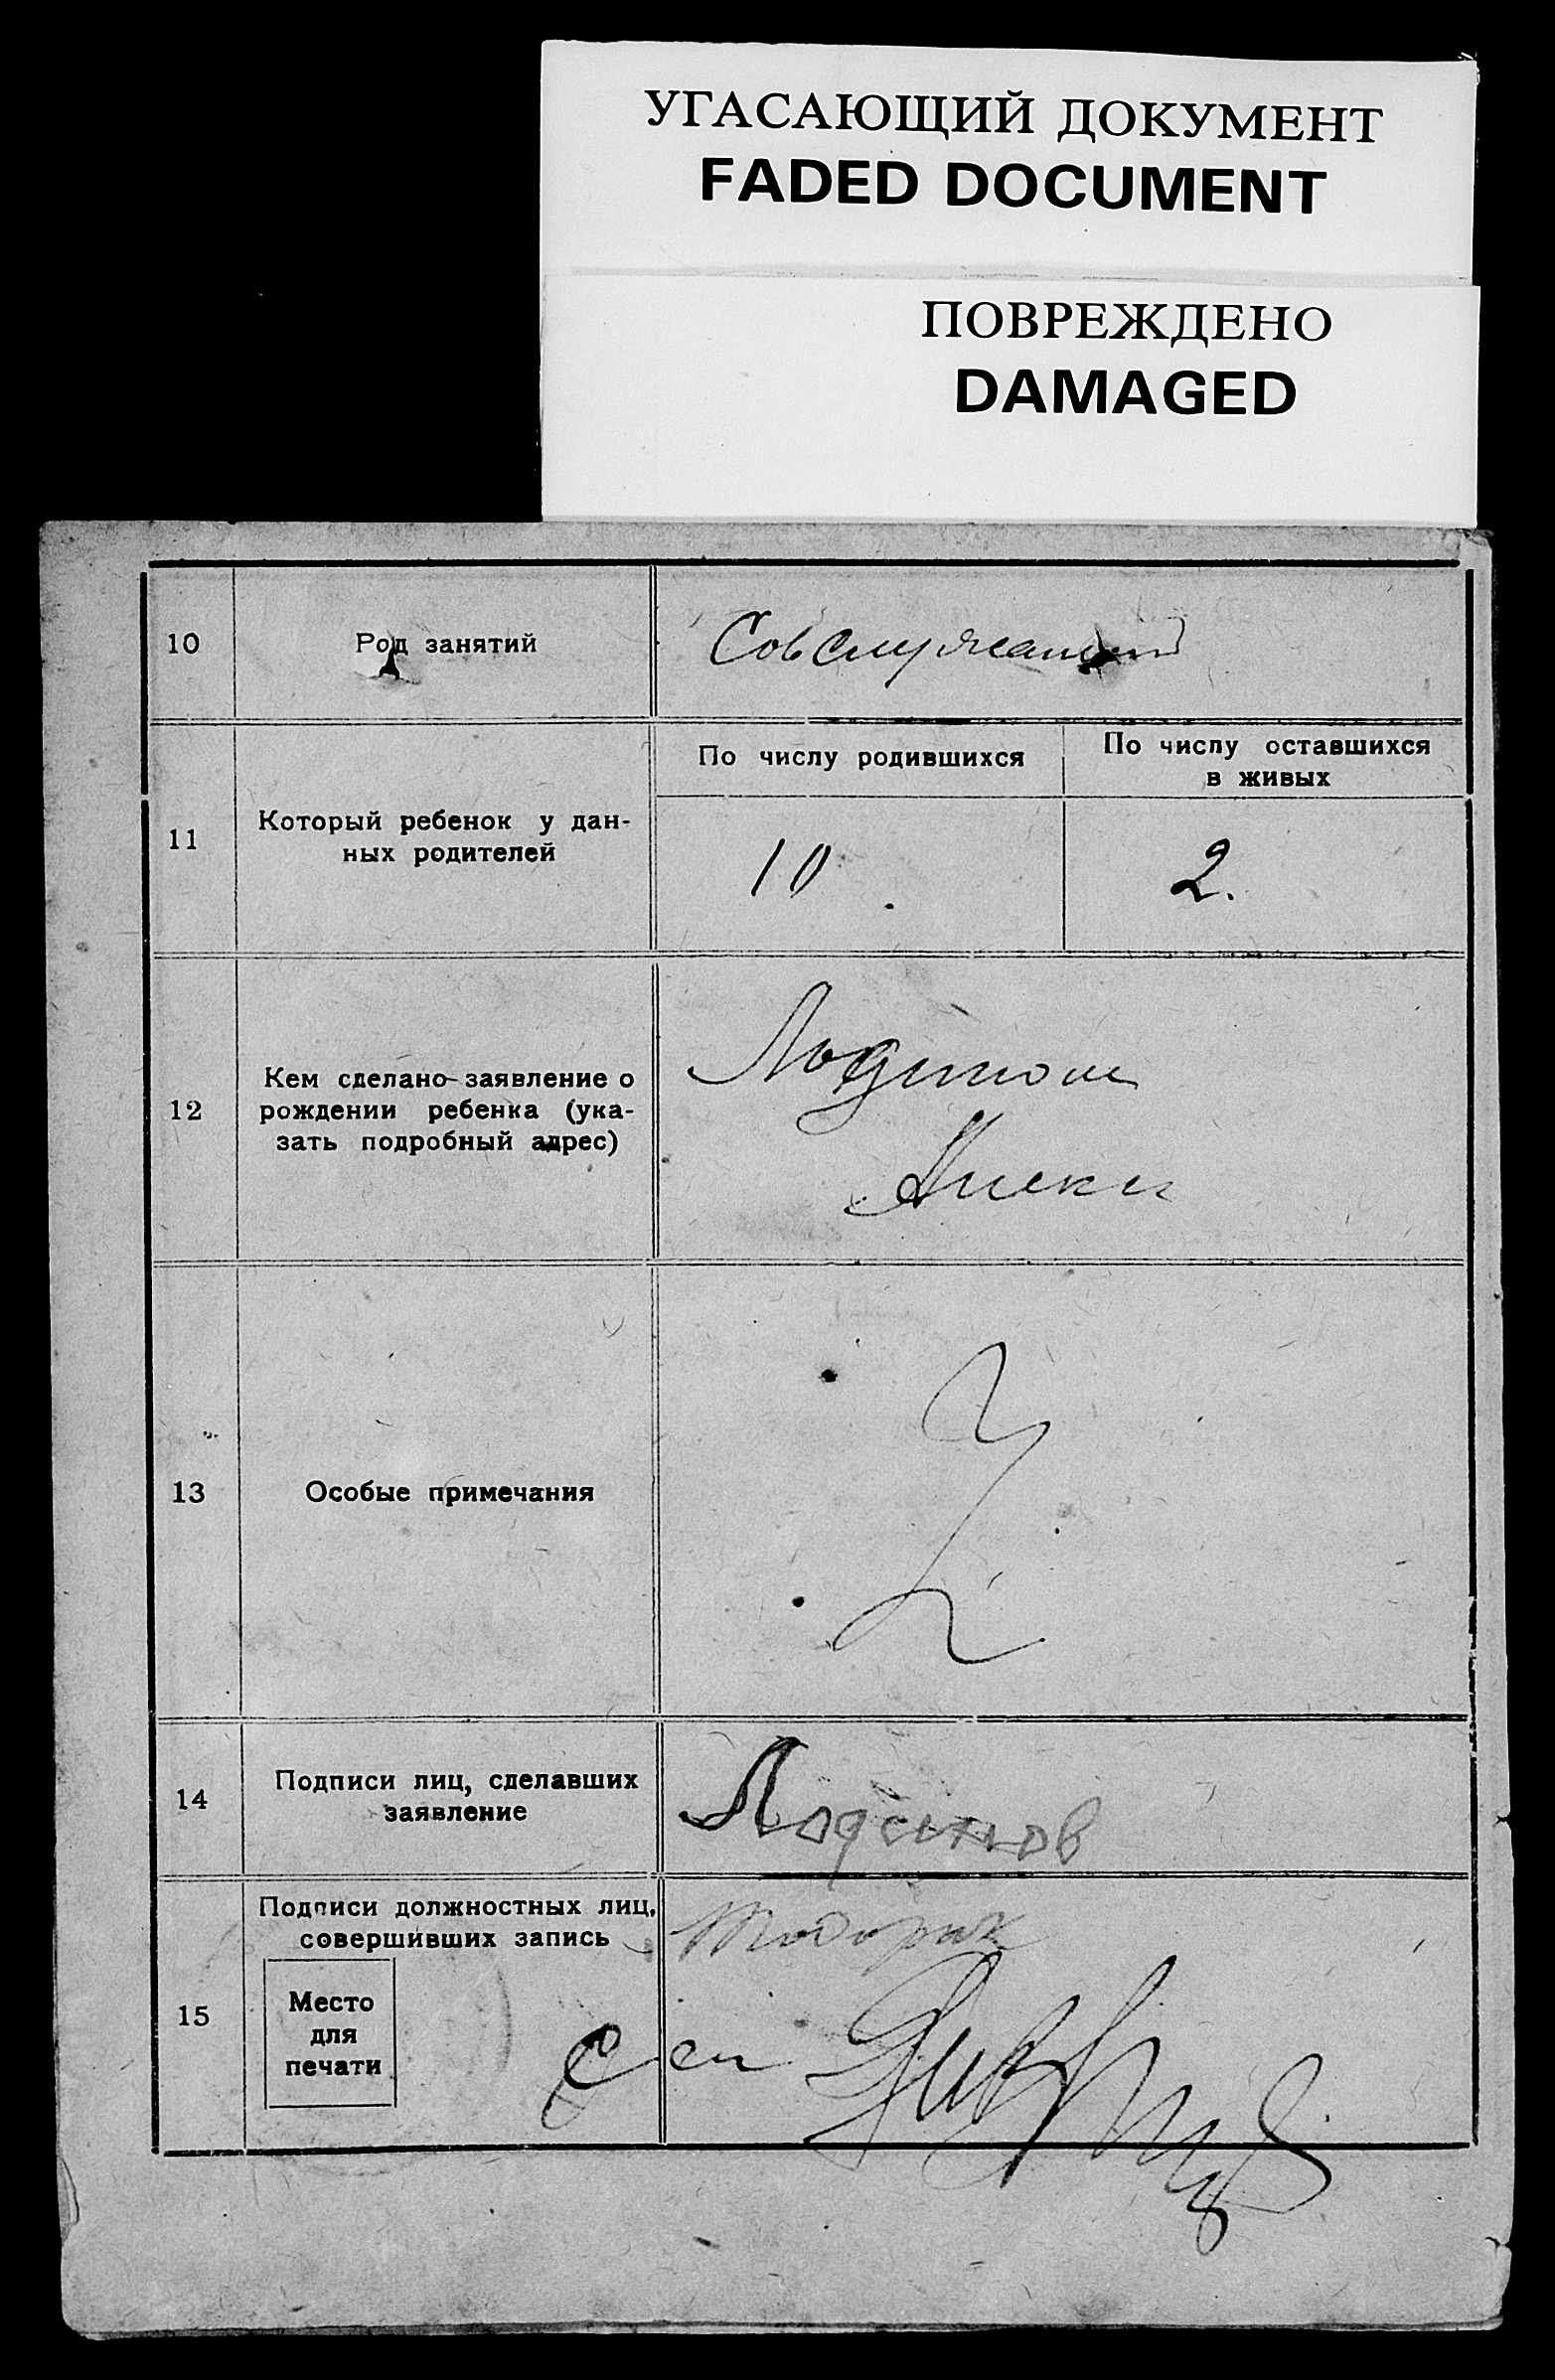 УГАСАЮЩИЙ ДОКУМЕНТ
FADED DOCUMENT
ПОВРЕЖДЕНО
DAMAGED
10 Род занятий Совслужащий
По числу родившихся
По числу оставшихся
в живых
11 Который ребенок у дан-
ных родителей
10. 2.
12 Кем сделано заявление о
рождении ребенка (ука-
зать подробный адрес)
13 Особые примечания
14 Подписи лиц, сделавших
заявление
15 Подписи должностных лиц,
совершивших запись
Место
для
печати